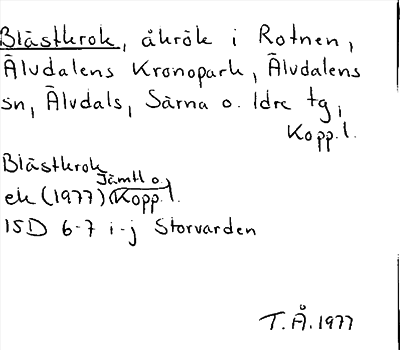 Blästkrok, åkrök i Rotnen,
Älvdalens Kronopark, Älvdalens
sn, Älvdals, Särna o. Idre tg,
Kopp. l.
Blästkrok
Jämtl o.
ek (1977) Kopp. l.
15D 6-7 i-j Storvarden
T.Å. 1977